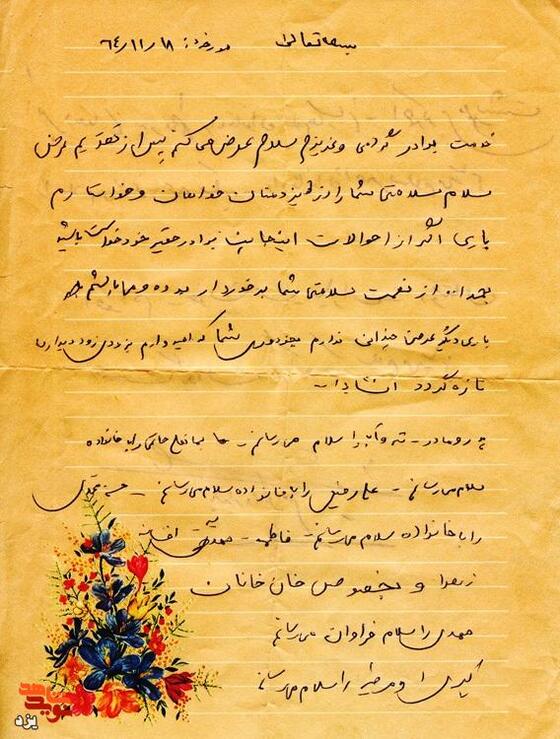 بسمه تعالی مورخه: ۶۴/۱۱/۱۸
خدمت برادر گرامی و عزیزم سلام عرض می کنم پس از تقدیم عرض
سلام سلامتی شما را از ایزد منان خواهان و خواستارم
باری اگر از احوالات اینجانب برادر حقیر خود خواسته باشید
بحمداله از نعمت سلامتی شما برخوردار بوده و می باشم
باری دیگر عرضی چندانی ندارم بجز دوری شما که امیدوارم بزودی زود دیدارها
تازه گردد انشااله
پدر و مادر - را سلام می رسانم - با خانواده
سلام می رسانم - علی را با خانواده سلام می رسانم -
را با خانواده سلام می رسانم - فاطمه -
زهرا و بخصوص خان خانان
مهدی را سلام فراوان می رسانم
کبری و مرضیه را سلام می رسانم
نوید شاهد
یزد